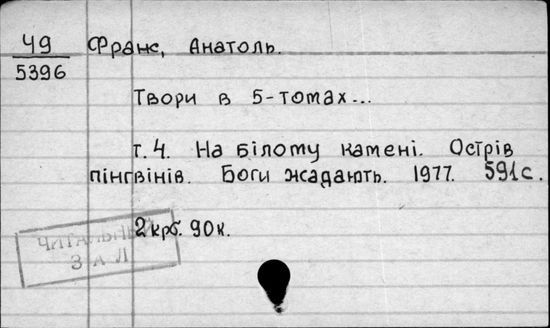 Ч9 Франс, Анатоль.
5396
Твори в 5-томах...
т.4. На білому камені. Острів
пінгвінів. Боги жадають. 1977. 591с.
2 крб. 90к.
ЧИТАЛЬНИЙ
ЗАЛ